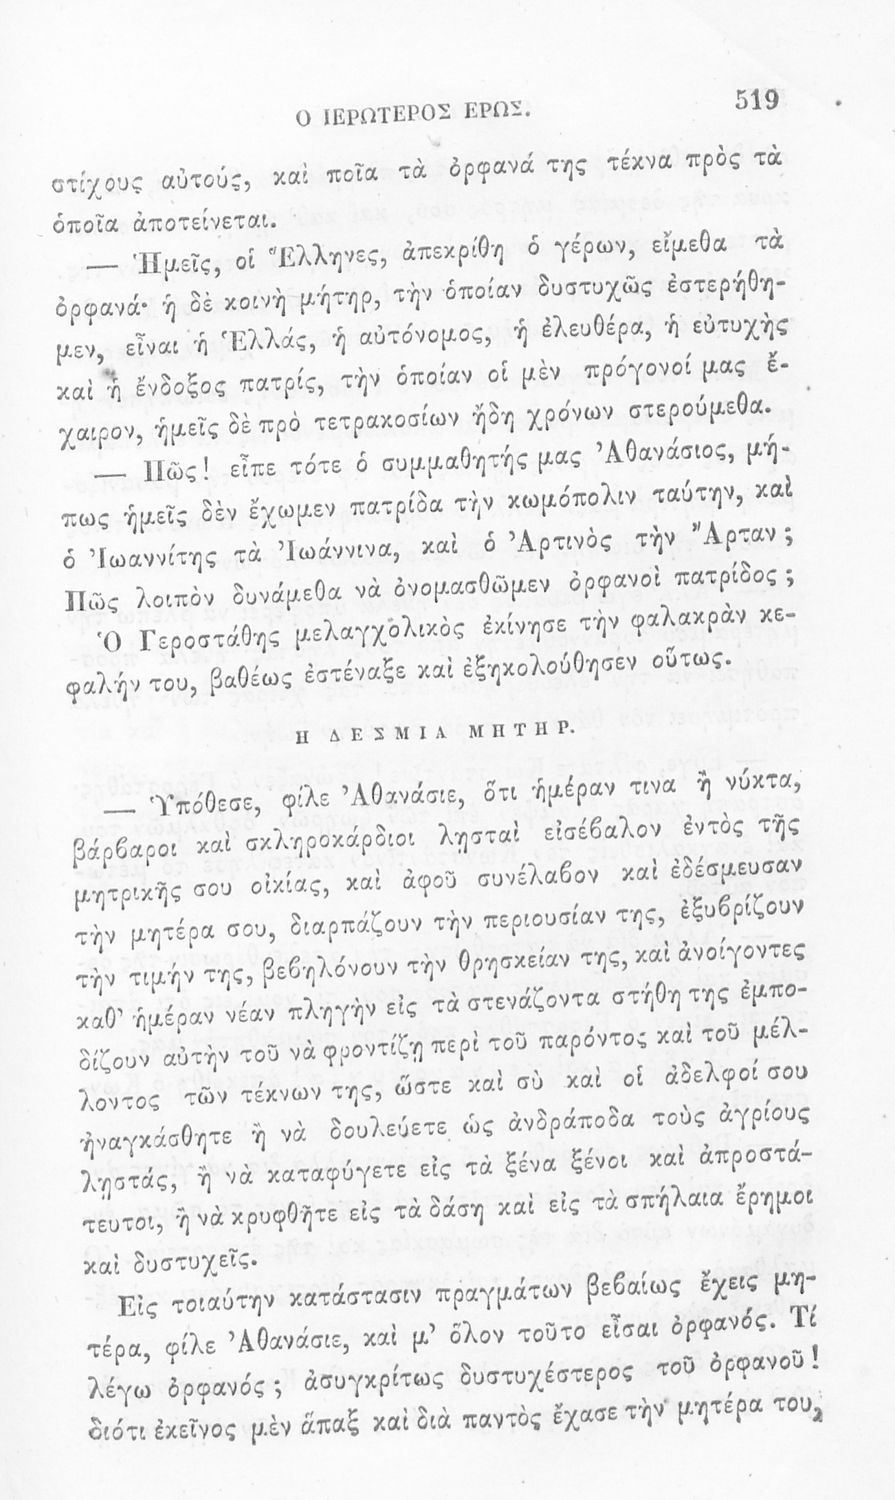 Ο ΙΕΡΩΤΕΡΟΣ ΕΡΩΣ.
519
στίχους αὐτούς, καὶ ποῖα τὰ ὀρφανά της τέκνα πρὸς τὰ
ὁποῖα ἀποτείνεται.
— Ἡμεῖς, οἱ Ἕλληνες, ἀπεκρίθη ὁ γέρων, εἴμεθα τὰ
ὀρφανά· ἡ δὲ κοινὴ μήτηρ, τὴν ὁποίαν δυστυχῶς ἐστερήθη-
μεν, εἶναι ἡ Ἑλλάς, ἡ αὐτόνομος, ἡ ἐλευθέρα, ἡ εὐτυχὴς
καὶ ἡ ἔνδοξος πατρίς, τὴν ὁποίαν οἱ μὲν πρόγονοί μας ἔ-
χαιρον, ἡμεῖς δὲ πρὸ τετρακοσίων ἤδη χρόνων στερούμεθα.
— Πῶς! εἶπε τότε ὁ συμμαθητής μας Ἀθανάσιος, μή-
πως ἡμεῖς δὲν ἔχωμεν πατρίδα τὴν κωμόπολιν ταύτην, καὶ
ὁ Ἰωαννίτης τὰ Ἰωάννινα, καὶ ὁ Ἀρτινὸς τὴν Ἄρταν;
Πῶς λοιπὸν δυνάμεθα νὰ ὀνομασθῶμεν ὀρφανοὶ πατρίδος;
Ὁ Γεροστάθης μελαγχολικὸς ἐκίνησε τὴν φαλακρὰν κε-
φαλήν του, βαθέως ἐστέναξε καὶ ἐξηκολούθησεν οὕτως.
Η ΔΕΣΜΙΑ ΜΗΤΗΡ.
— Ὑπόθεσε, φίλε Ἀθανάσιε, ὅτι ἡμέραν τινα ἢ νύκτα,
βάρβαροι καὶ σκληροκάρδιοι λῃσταὶ εἰσέβαλον ἐντὸς τῆς
μητρικῆς σου οἰκίας, καὶ ἀφοῦ συνέλαβον καὶ ἐδέσμευσαν
τὴν μητέρα σου, διαρπάζουν τὴν περιουσίαν της, ἐξυβρίζουν
τὴν τιμήν της, βεβηλόνουν τὴν θρησκείαν της, καὶ ἀνοίγοντες
καθ' ἡμέραν νέαν πληγὴν εἰς τὰ στενάζοντα στήθη της ἐμπο-
δίζουν αὐτὴν τοῦ νὰ φροντίζῃ περὶ τοῦ παρόντος καὶ τοῦ μέλ-
λοντος τῶν τέκνων της, ὥστε καὶ σὺ καὶ οἱ ἀδελφοί σου
ἠναγκάσθητε ἢ νὰ δουλεύετε ὡς ἀνδράποδα τοὺς ἀγρίους
λῃστάς, ἢ νὰ καταφύγετε εἰς τὰ ξένα ξένοι καὶ ἀπροστά-
τευτοι, ἢ νὰ κρυφθῆτε εἰς τὰ δάση καὶ εἰς τὰ σπήλαια ἔρημοι
καὶ δυστυχεῖς.
Εἰς τοιαύτην κατάστασιν πραγμάτων βεβαίως ἔχεις μη-
τέρα, φίλε Ἀθανάσιε, καὶ μ' ὅλον τοῦτο εἶσαι ὀρφανός. Τί
λέγω ὀρφανός; ἀσυγκρίτως δυστυχέστερος τοῦ ὀρφανοῦ!
διότι ἐκεῖνος μὲν ἅπαξ καὶ διὰ παντὸς ἔχασε τὴν μητέρα του,